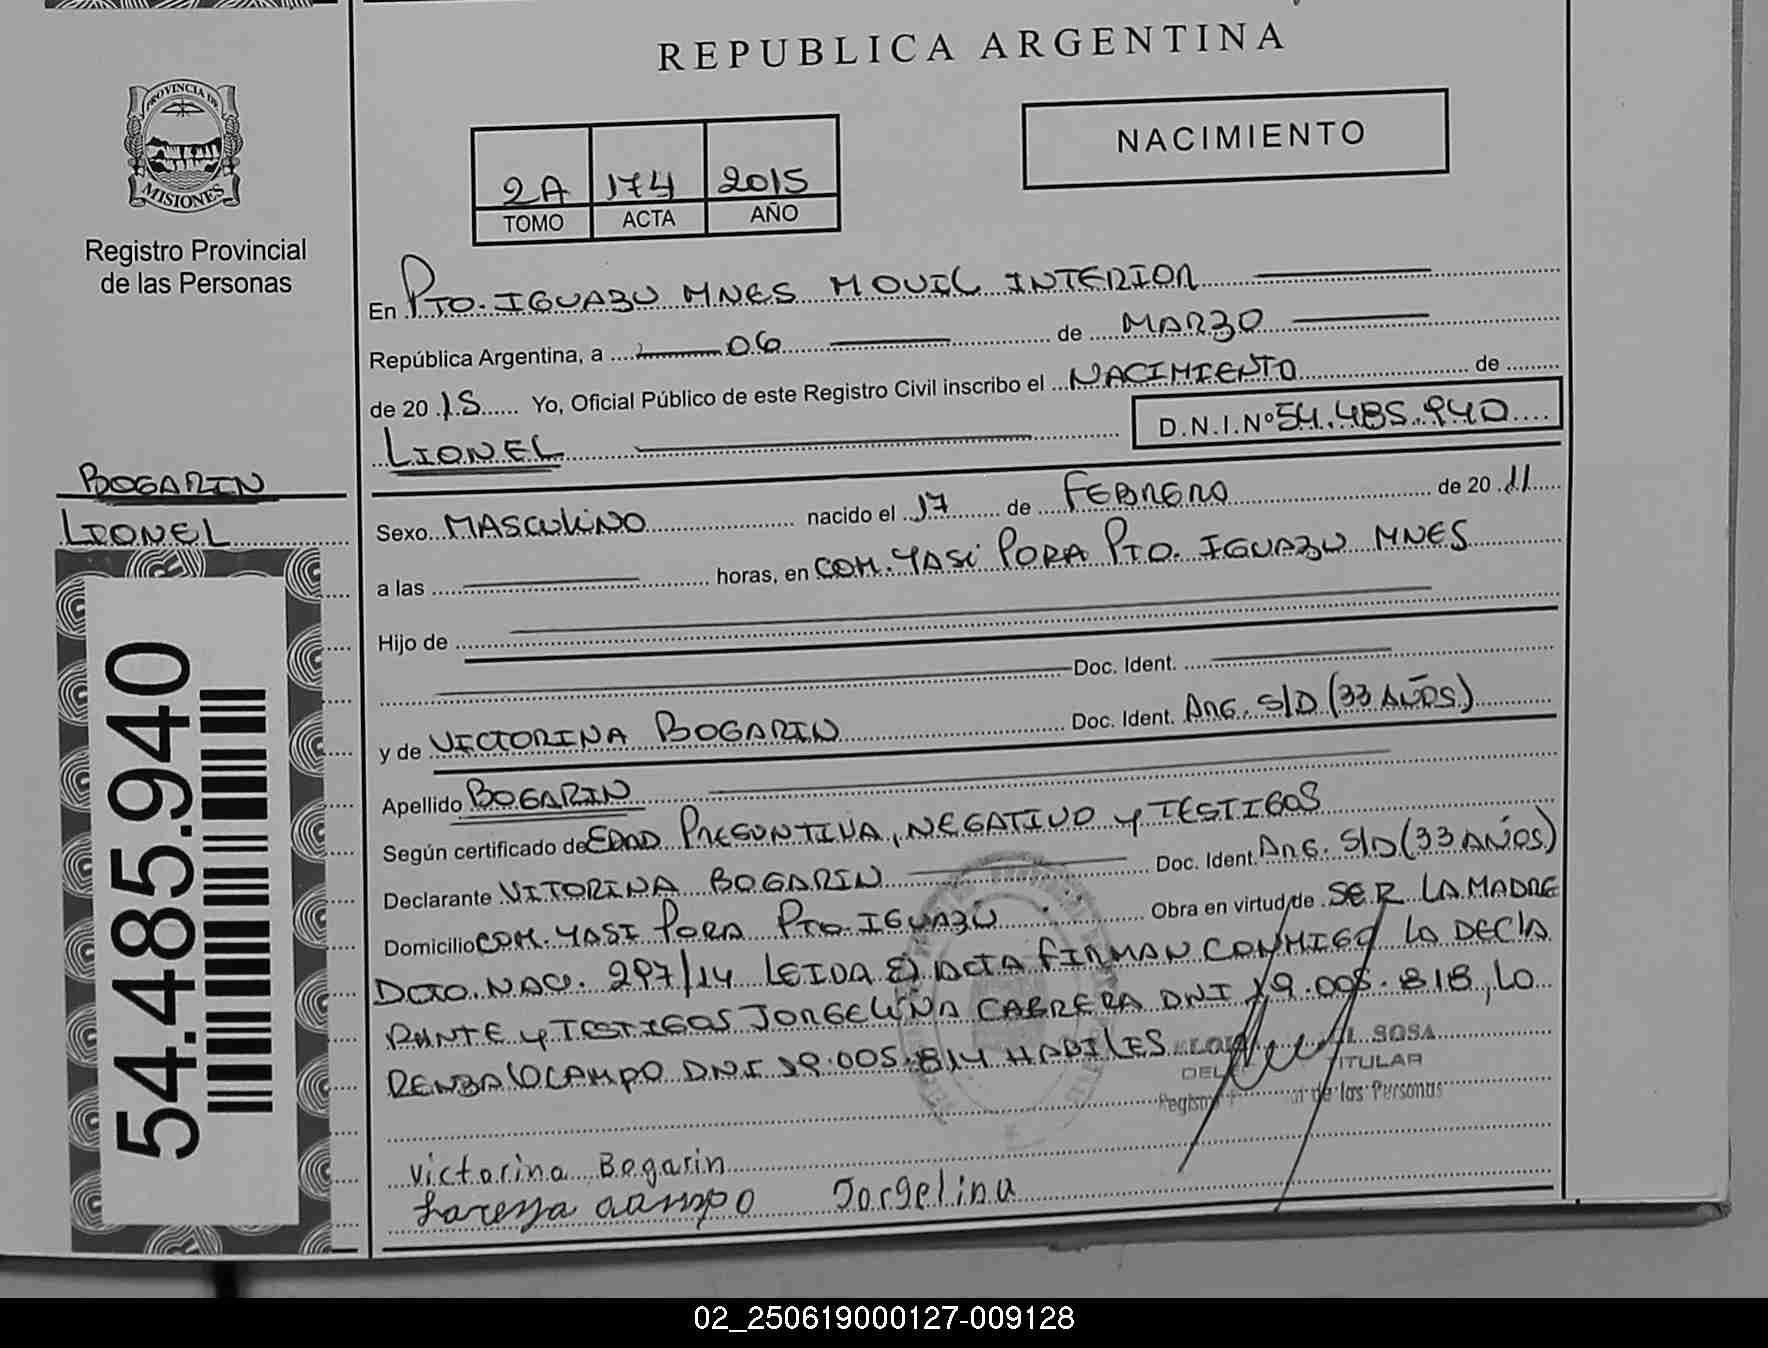 REPUBLICA ARGENTINA
PROVINCIA DE
MISIONES
Registro Provincial
de las Personas
NACIMIENTO
2A 174 2015
TOMO ACTA AÑO
En PTO. IGUAZU MNES MOVIL INTERIOR
República Argentina, a 06 de MARZO
de 20 15 Yo, Oficial Público de este Registro Civil inscribo el NACIMIENTO de
LIONEL D.N.I.Nº 54.485.940
BOGARIN
LIONEL
Sexo MASCULINO nacido el 17 de FEBRERO de 20 11
a las horas, en COM. YASI PORA PTO. IGUAZU MNES
Hijo de
Doc. Ident.
y de VICTORINA BOGARIN Doc. Ident. ARG. S/D (33 AÑOS)
Apellido BOGARIN
Según certificado de EDAD PRESUNTIVA, NEGATIVO Y TESTIGOS
Declarante VITORINA BOGARIN Doc. Ident. ARG. S/D (33 AÑOS)
Domicilio COM. YASI PORA PTO. IGUAZÚ Obra en virtud de SER LA MADRE
DCTO. NAC. 297/14 LEIDA EL ACTA FIRMAN CONMIGO LA DECLA
RANTE Y TESTIGOS JORGELINA CABRERA DNI 19.005.818, LO
RENZA OCAMPO DNI 19.005.814 HABILES
L. SOSA
DEL ITULAR
Regist de las Personas
Victorina Bogarin
Jorgelina
54.485.940
02_250619000127-009128